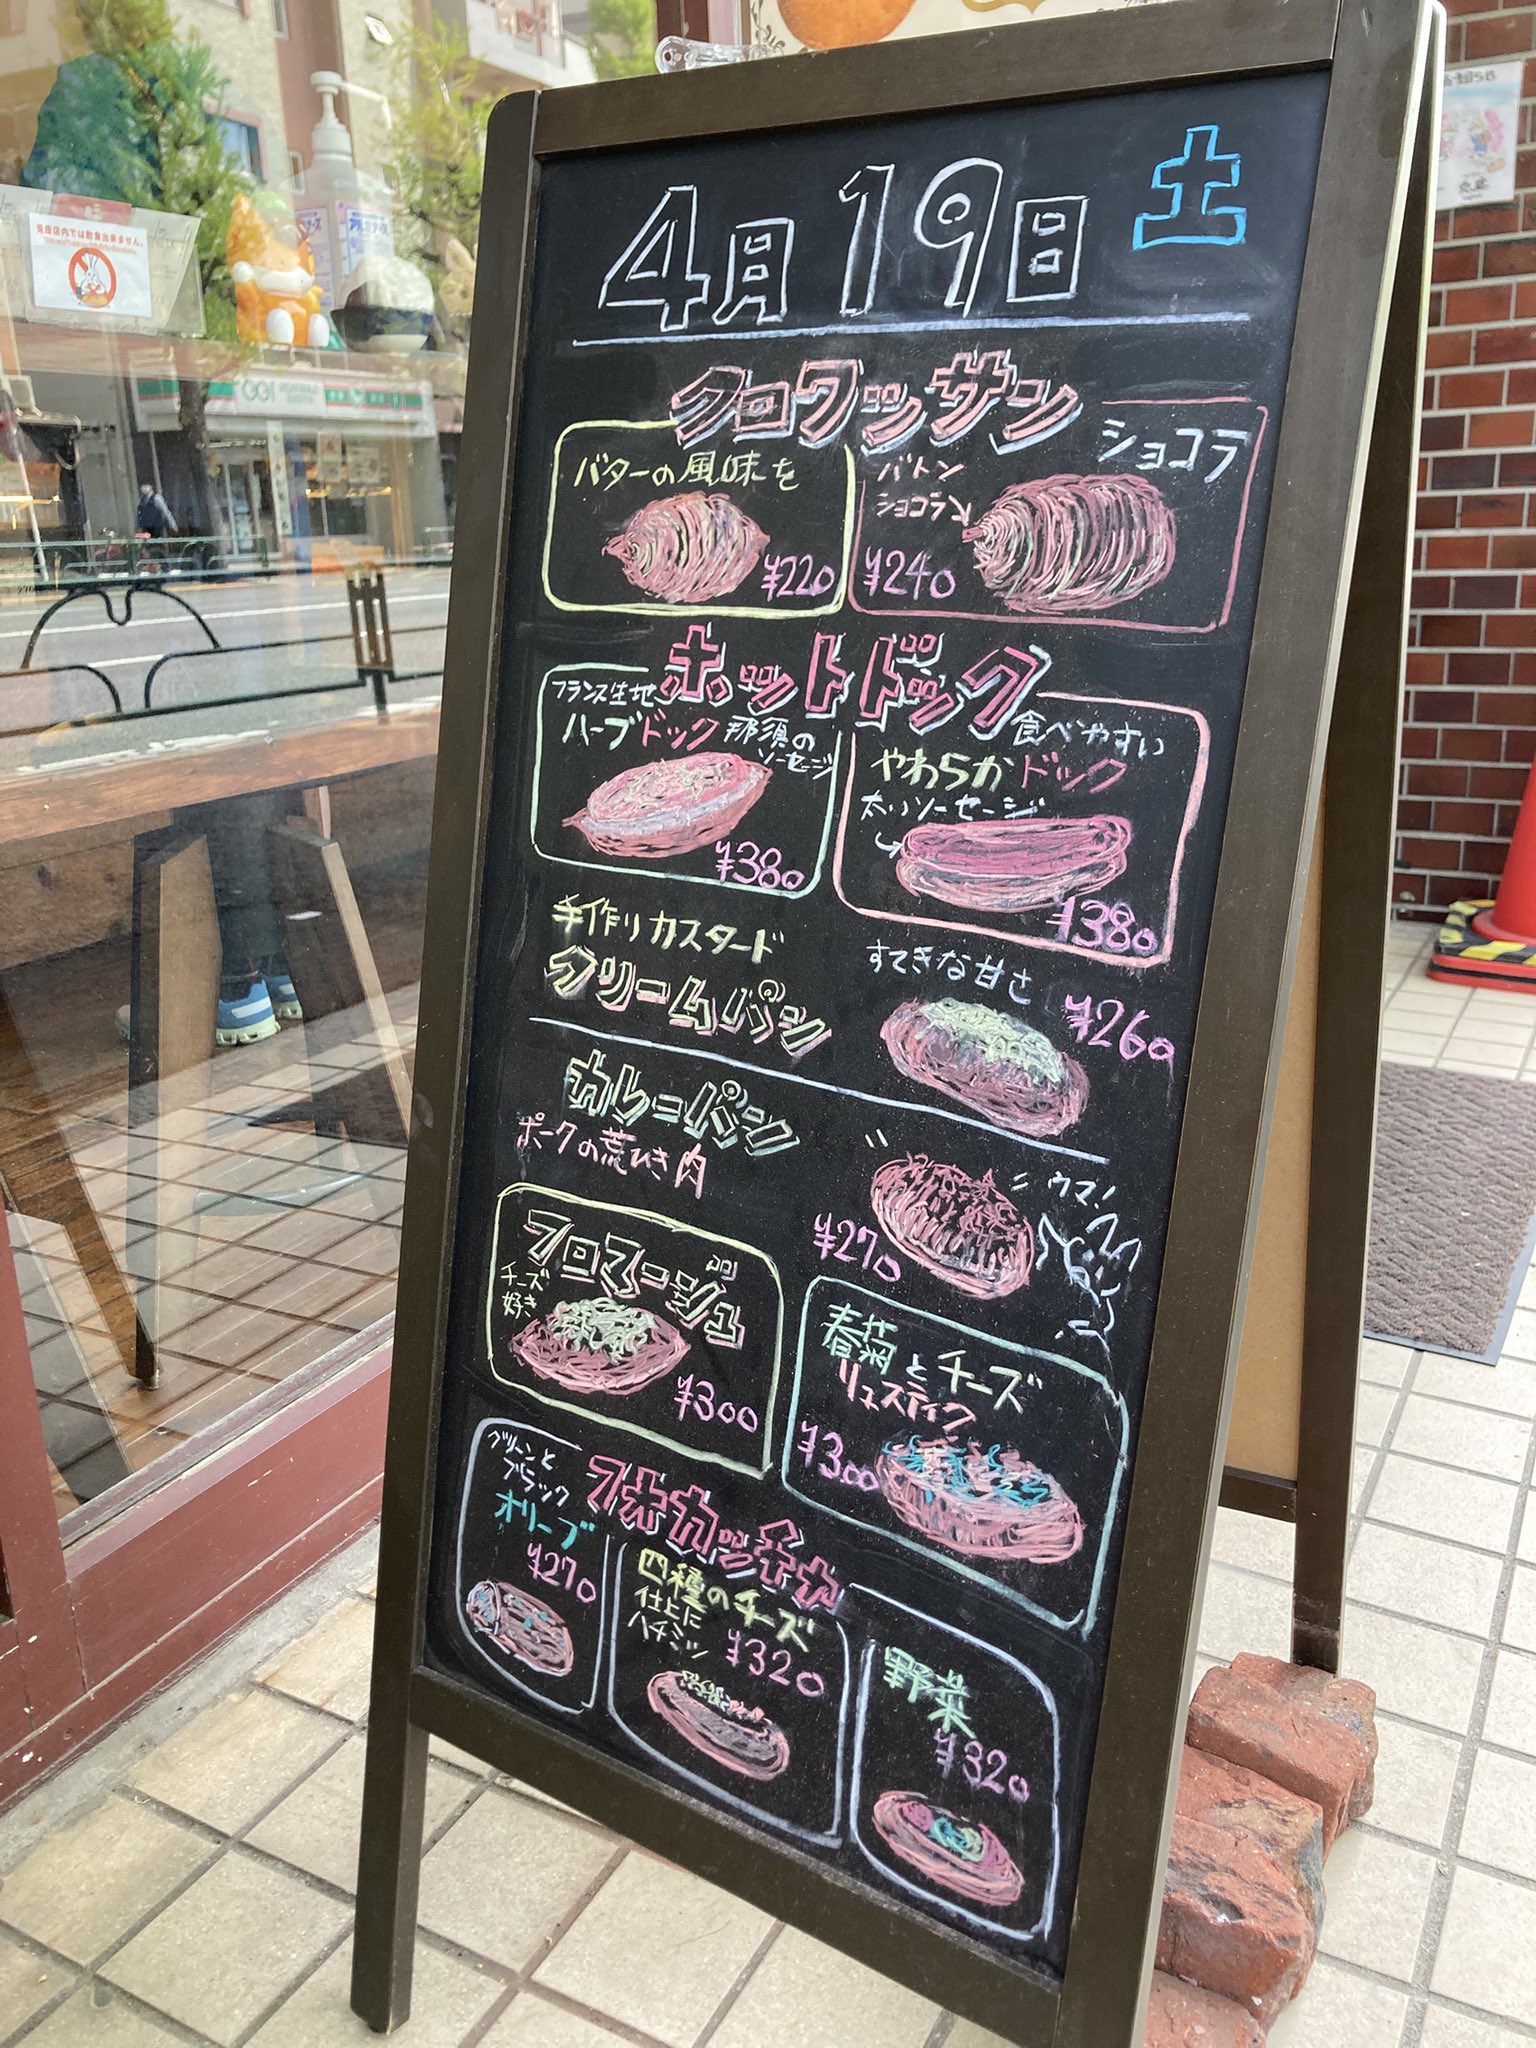 4月19日 土
クロワッサン
バターの風味を
¥220
ショコラ
バトン
ショコラ入
¥240
ホットドック
フランス生地
ハーブドック 那須の
ソーセージ
¥380
食べやすい
やわらかドック
太いソーセージ
¥380
手作りカスタード
クリームパン
すてきな甘さ
¥260
カレーパン
ポークの荒びき肉
ウマ!
¥270
フロマージュ
チーズ
好き
¥300
春菊とチーズ
リュスティク
¥300
フォカッチャ
グリーンと
ブラック
オリーブ
¥270
四種のチーズ
仕上に
ハチミツ
¥320
野菜
¥320
当店店内では飲食出来ません。